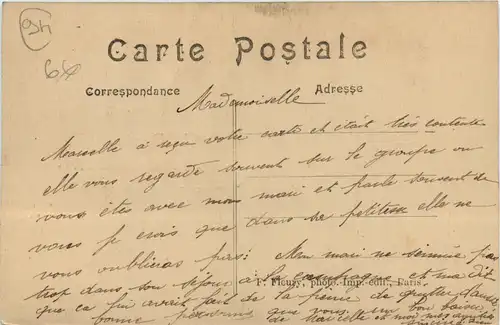 94
Carte Postale
Correspondance
Adresse
Mademoiselle
Marcelle a reçu votre carte et était très contente
elle vous regarde souvent sur le groupe ou
vous êtes avec mon mari et parle souvent de
vous je crois que dans sa petitesse elle ne
vous oubliera pas. Mon mari ne s'ennuie pas
F. Fleury, phot. Imp. édit., Paris.
trop dans son séjour à la campagne et m'a dit
que ça lui avait fait de la peine de quitter d'aussi
bonne que vous, un bon baiser
de Marcelle et moi mes amitiés